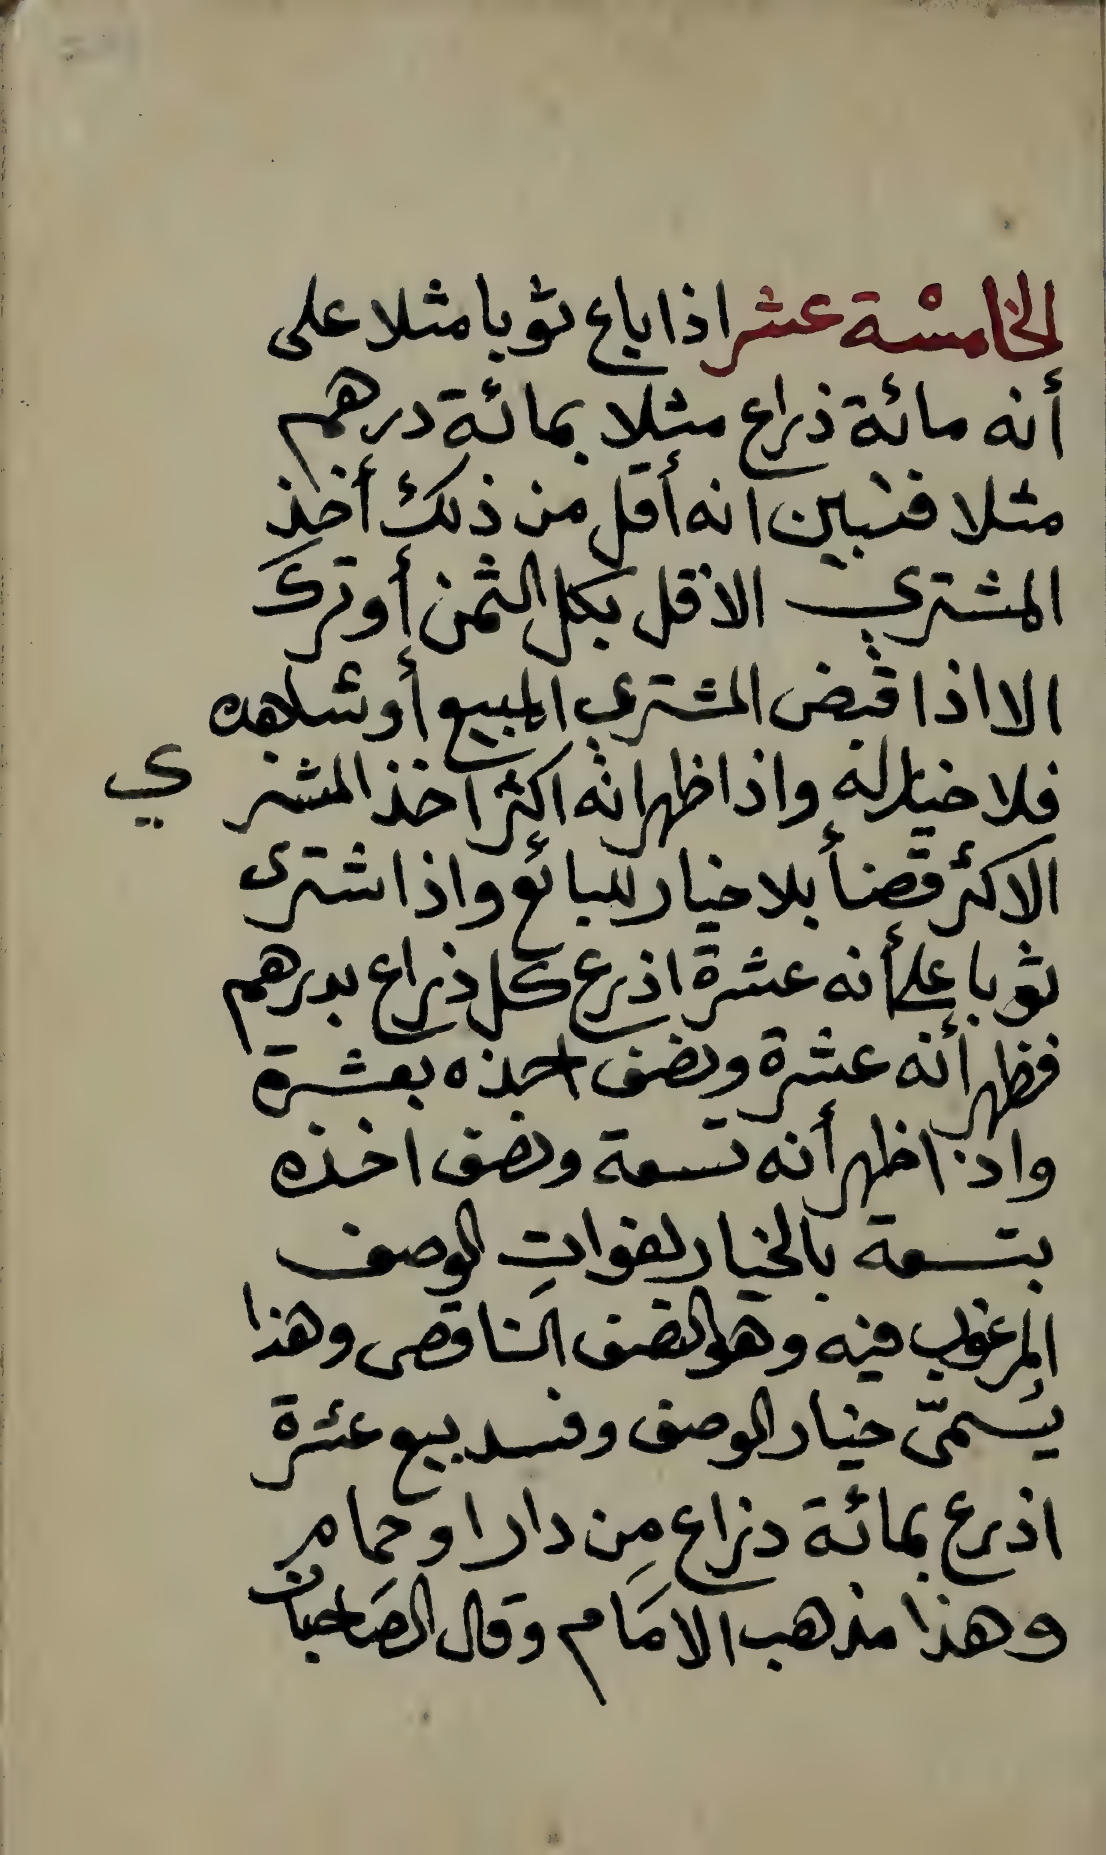 الخامسة عشر اذا باع ثوبا مثلا على
أنه مائة ذراع مثلا بمائة درهم
مثلا فتبين انه أقل من ذلك أخذ
المشتري الاقل بكل الثمن أو ترك
الا اذا قبض المشتري المبيع أو شاهده
فلا خيار له واذا ظهر انه اكثر اخذ المشتري
الاكثر قضأ بلا خيار للبائع واذا اشترى
ثوبا على أنه عشرة اذرع كل ذراع بدرهم
فظهر أنه عشرة ونصف اخذه بعشرة
واذا ظهر أنه تسعة ونصف اخذه
بتسعة بالخيار لفوات الوصف
المرغوب فيه وهو النصف الناقص وهذا
يُسمىّ خيار الوصف وفسد بيع عشرة
اذرع بمائة ذراع مِن دار او حمام
وهذا مذهب الامَام وقال الصَاحبان